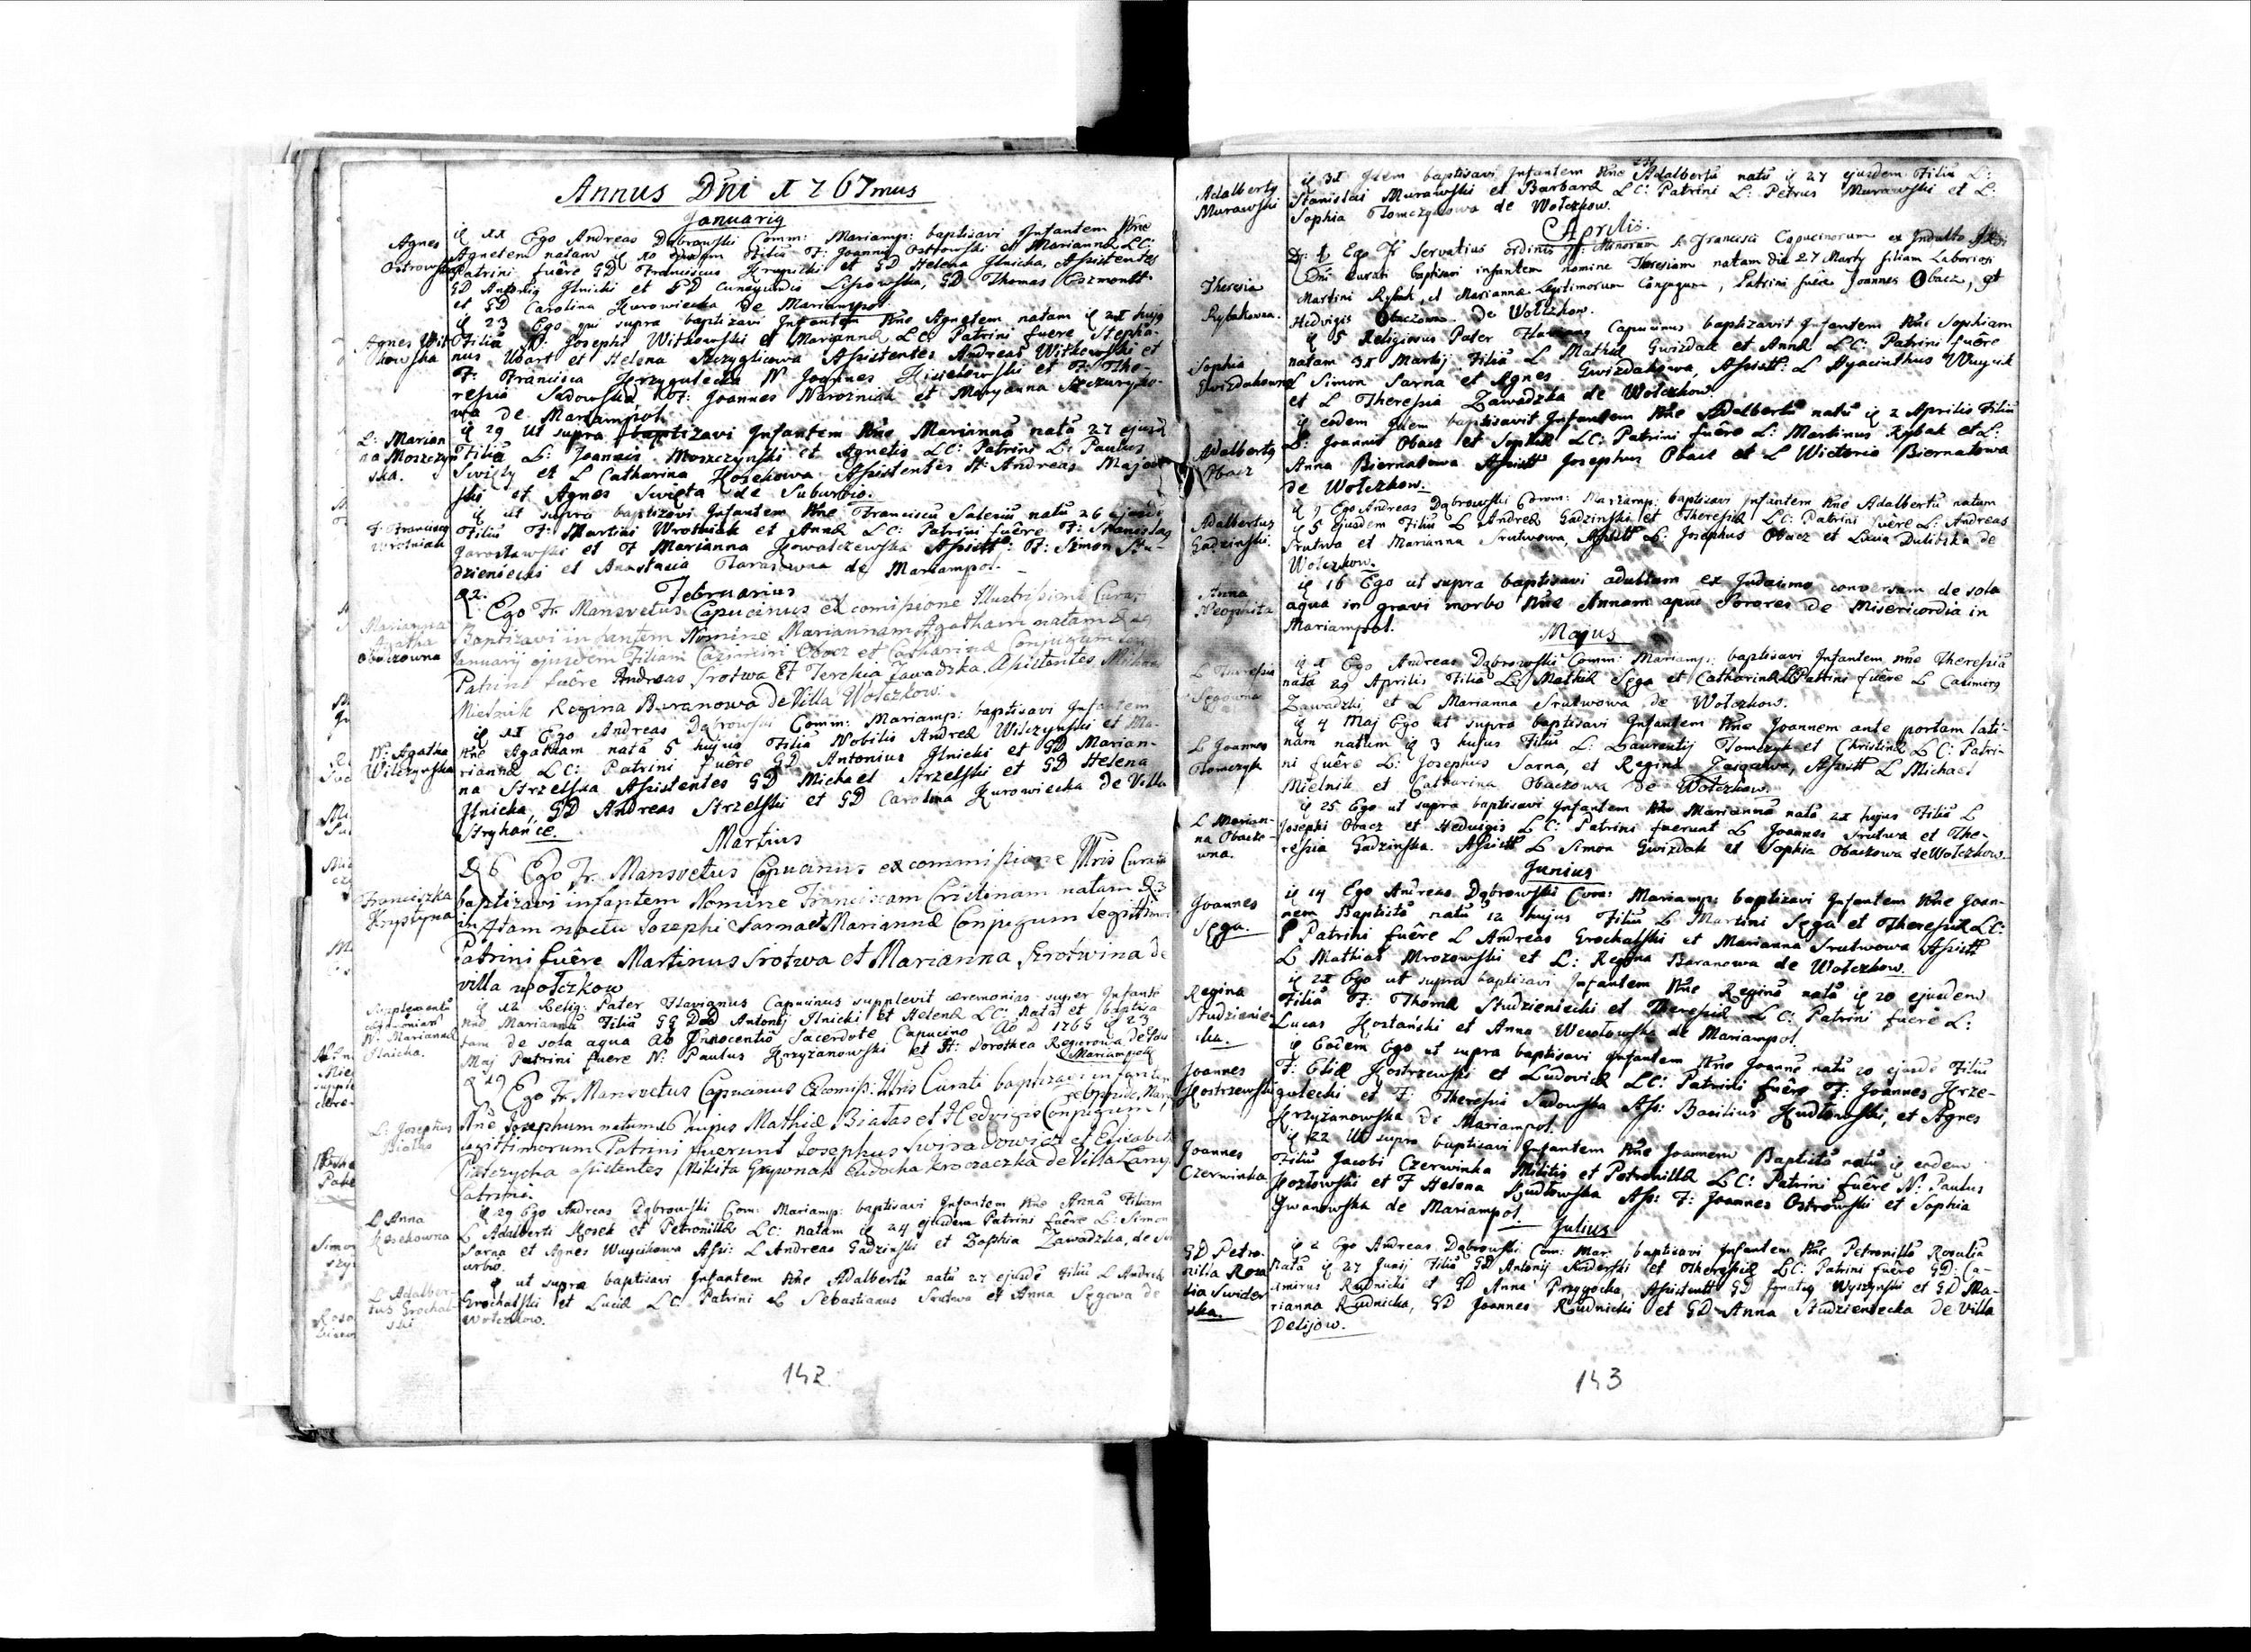 Annus Dni 1767mus
Januarig
Agnes
Ostrowska
q 11 Ego Andreas Dąbrowski Comm: Mariamp: baptisavi Infantem Nne
Agnetem natam q 10 Filiã F: Joannis Ostrowski et Mariannæ LC:
Patrini fuêre GD Franciscus Krupicki et GD Helena Ilnicka, Assistentes
GD Antonig Ilnicki et GD Cunegundis GD Thomas
et GD Carolina Kurowiecka de Mariampol
Agnes Wit
kowska
q 23 Ego qui supra baptizavi Infantem Nne Agnetem natam q 21 hujg
Filiã N: Josephi Witkowski et Mariannæ LC: Patrini fuere Stepha-
nus et Helena Szczyglicowa Assistentes Andreas Witkowski et
F: Francisca Krzygulecka N Joannes et F: The-
resia Sadowska F: Joannes Narozniak et Maryanna Szczuryko-
wa de Mariampol
L: Marian
na Moszczyn
ska.
q 29 Ut supra baptizavi Infantem Nne Mariannã natã 27 ejusd
Filiã L: Joannis Moszczynski et Agnetis LC: Patrini L: Paulus
Swięty et L Catharina Kosekowa Assistentes H: Andreas
ski et Agnes Swięta de Suburbio.
F: Franciscg
Wrotniak
q ut supra baptizavi Infantem Nne Franciscũ Salesiũ natũ 26 ejusde
Filiũ F: Martini Wrotniak et Annæ LC: Patrini fuêre F: Stanislag
Jarosławski et F Marianna Kowalczewska Assistt: F: Simon Stu-
dzieniecki et Anastasia de Mariampol.
Februarius
D 2. Ego Fr. Mansvetus Capucinus ex comissione Illustrissimi Curati
Marianna
Agatha
Obaczowna
Baptizavi infantem Nomine Mariannam Agatham natam D 29
Januarij ejusdem Filiam Casimiri Obacz et Catharinæ Conjugum
Patrini fuêre Andreas Srotwa et Teresia Zawadzka. Assistentes Michae
Mielnik Regina Baranowa de Villa Wołczkow.
N: Agatha
Wilczynska
q 11 Ego Andreas Dąbrowski Comm: Mariamp: baptisavi Infantem
Nne Agatham natã 5 hujus Filiã Nobilis Andreæ Wilczynski et Ma-
riannæ LC: Patrini fuêre GD Antonius Ilnicki et GD Marian-
na Strzelska Assistentes GD Michael Strzelski et GD Helena
Ilnicka, GD Andreas Strzelski et GD Carolina Kurowiecka de Villa
Stryhańce.
Martius
Franciszka
Krystyna
D 6 Ego Fr. Mansvetus Capucinus ex commissione Illris Curati
baptizavi infantem Nomine Franciscam Cristinam natam D 3
noctu Josephi Sarna et Mariannæ Conjugum Legittimor
Patrini fuêre Martinus Srotwa et Marianna Srotwina de
villa wołczkow
Supplementũ
ceremoniarũ
N: Mariannæ
Ilnicka.
q 12 Relig: Pater Flavianus Capucinus supplevit ceremonias super Infanti
Nne Mariannã Filiã GG DD Antonij Ilnicki et Helenæ LC: natã et baptisa-
tam de sola aqua ab Innocentio Sacerdote Capucino Ao D 1765 q 23
Maj Patrini fuere N: Paulus Krzyżanowski et H: Dorothea Regierowa de
Mariampol
L: Josephus
Białas
D 19 Ego Fr. Mansvetus Capucinus Ex comiss: Illris Curati baptizavi infantem
de Oppido Mar
Nne Josephum natum 16 hujus Mathiæ Białas et Hedvigis Conjugum
Legittimorum Patrini fuerunt Josephus Swiradowicz et Elisabeth
Piatczycha assistentes Nikita Grywnak Eudocha de Villa Łany
Patrini.
L Anna
Kosekowna
q 29 Ego Andreas Dąbrowski Com: Mariamp: baptisavi Infantem Nne Annã Filiam
L Adalberti Kosek et Petronillæ LC: natam q 24 ejusdem Patrini fuêre L: Simon
Sarna et Agnes Wuycikowa Assi: L Andreas Gadzinski et Zophia Zawadzka, de Su
urbio.
L Adalber-
tus Grochal
ski
q ut supra baptisavi Infantem Nne Adalbertũ natũ 27 ejusdē Filiũ L Andreæ
Grochalski et Luciæ LC: Patrini L Sebastianus Srutwa et Anna Sęgowa de
Wołczkow.
142
Adalbertg
Murawski
q 31 Idem baptisavi Infantem Nne Adalbertũ natũ q 27 ejusdem Filiũ L:
Stanislai Murawski et Barbaræ LC: Patrini L: Petrus Murawski et L:
Sophia Tomczykowa de Wołczkow.
Aprilis.
Theresia
Rybakowna.
D: 1 Ego Fr Servatius ordinis FF: Minorum S. Francisci Capucinorum ex Indulto
Dni Curati baptisavi infantem nomine Theresiam natam die 27 Marty filiam Laboriosi
Martini Rybak, et Mariannæ Legitimorum Conjugum, Patrini fuêre Joannes Obacz, et
Hedvigis Obaczowa de Wołczkow.
Sophia
Gwizdakowna
q 5 Religiosus Pater Flavianus Capucinus baptizavit Infantem Nne Sophiam
natam 31 Martij Filiã L Mathiæ Gwizdak et Annæ LC: Patrini fuêre
L Simon Sarna et Agnes Gwizdakowa, Assistt: L Hyacinthus Wuycik
et L Theresia Zawadzka de Wołczkow.
Adalbertg
Obacz
q eodem Idem baptisavit Infantem Nne Adalbertũ natũ q 2 Aprilis Filiũ
L: Joannis Obacz et Sophiæ LC: Patrini fuêre L: Martinus Rybak et L:
Anna Biernatowa Assistt Josephus Obacz et L Victoria Biernatowa
de Wołczkow.
Adalbertus
Gadzinski.
q 7 Ego Andreas Dąbrowski Comm: Mariamp: baptisavi Infantem Nne Adalbertũ natum
q 5 ejusdem Filiũ L Andreæ Gadzinski et Theresiæ LC: Patrini fuêre L: Andreas
Srutwa et Marianna Srutwowa, Assistt L: Josephus Obacz et Lucia Dulibska de
Wołczkow.
Anna
Neophita
q 16 Ego ut supra baptisavi adultam ex Judaismo conversam de sola
aqua in gravi morbo Nne Annam apud Sorores de Misericordia in
Mariampol.
Majus
L Theresia
Sęgowna
q 1 Ego Andreas Dąbrowski Comm: Mariamp: baptisavi Infantem nne Theresiã
natã 29 Aprilis Filiã L: Mathiæ Sęga et Catharinæ LC Patrini fuêre L Casimirg
Zawadzki et L Marianna Srutwowa de Wołczkow.
L Joannes
Tomczyk
q 4 Maj Ego ut supra baptisavi Infantem Nne Joannem ante portam lati-
nam natum q 3 hujus Filiũ L: Laurentij Tomczyk et Christinæ LC: Patri-
ni fuêre L: Josephus Sarna, et Regina Assistt L Michael
Mielnik et Catharina Obaczowa de Wołczkow.
L Marian-
na Obaczo-
wna.
q 25 Ego ut supra baptisavi Infantem Nne Mariannã natã 21 hujus Filiã L
Josephi Obacz et Hedvigis LC: Patrini fuerunt L Joannes Srutwa et The-
resia Gadzinska. Assistt L Simon Gwizdak et Sophia Obaczowa de Wołczkow.
Junius
Joannes
Sęga.
q 14 Ego Andreas Dąbrowski Com: Mariamp: baptizavi Infantem Nne Joan-
nem Baptistã natũ 12 hujus Filiũ L Martini Sęga et Theresiæ LC:
Patrini fuêre L Andreas Grochalski et Marianna Srutwowa Assistt
L Mathias Mrozowski et L: Regina Baranowa de Wołczkow.
Regina
Studzienie-
cka.
q 21 Ego ut supra baptisavi Infantem Nne Reginã natã q 20 ejusdem
Filiã F: Thomæ Studzieniecki et Theresiæ LC: Patrini fuêre L:
Lucas Koztański et Anna Wesołowska de Mariampol.
Joannes
Kostrzewski
q Eodem Ego ut supra baptisavi Infantem Nne Joannē natũ 20 ejusdē Filiũ
F: Eliæ Kostrzewski et Ludovicæ LC: Patrini fuêre F: Joannes Krze-
gulecki et F: Theresia Sadowska Ass: Basilius Kudłowski, et Agnes
Krzyżanowska de Mariampol.
Joannes
Czerwinka
q 22 Ut supra baptisavi Infantem Nne Joannem Baptistã natũ q eodem
Filiũ Jacobi Czerwinka Militis et Petronillæ LC: Patrini fuêre N: Paulus
Kozłowski et F Helena Kudłowska Ass: F: Joannes Ostrowski et Sophia
Iwanowska de Mariampol.
Julius
GD Petro-
nilia Rosa
lia Swider
ska.
q 2 Ego Andreas Dąbrowski Com: Mar: baptisavi Infantem Nne Petronillã Rosaliã
natã q 27 Junij Filiã GD Antonij Swiderski et Theresiæ LC: Patrini fuêre GD: Ca-
simirus Rudnicki et GD Anna Przygocka, Assistentt GD Ignatig Wyszynski et GD Ma-
rianna Rudnicka, GD Joannes Rudnicki et GD Anna Studzieniecka de Villa
Delijow.
143